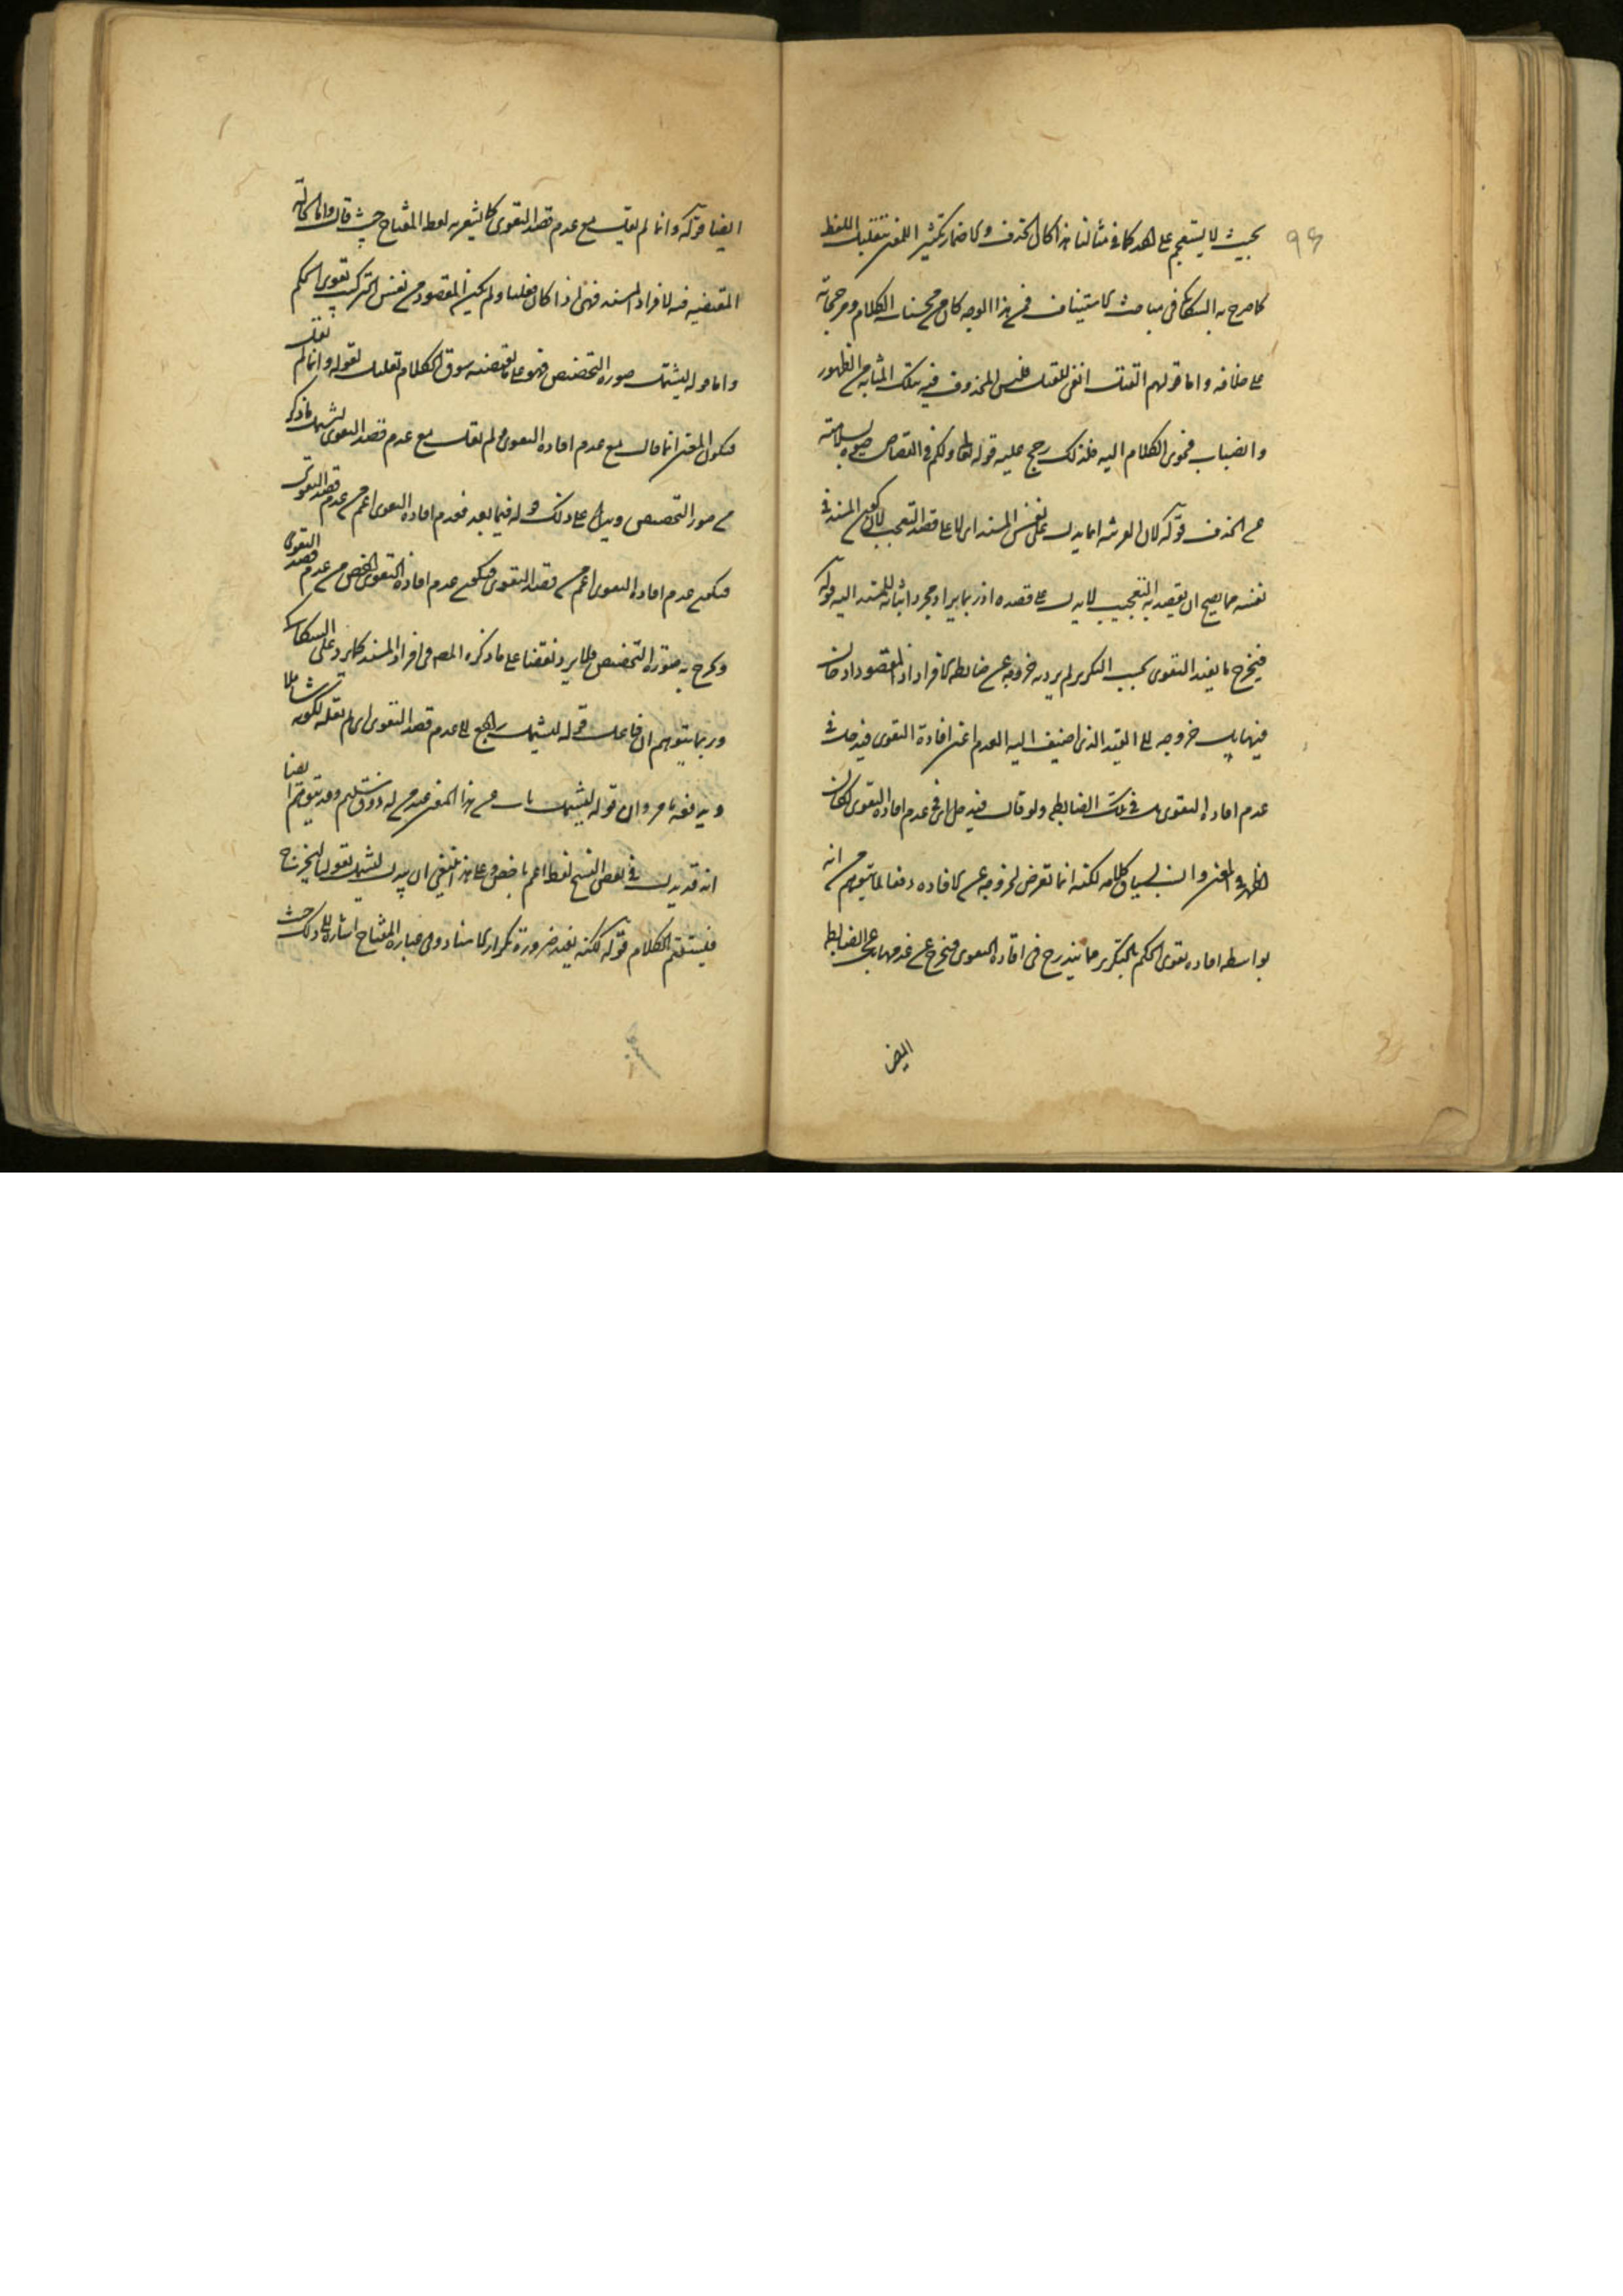 ٩٤
بحيث لا يستعجم على احد كما في مثالنا هذا كان الحذف والاضمار تكثير المعنى بتقليل اللفظ
كما صرح به السكاكى فى مباحث الاستيناف فمن هذا الوجه كان من محسنات الكلام ومرجحاته
على خلافه واما قولهم القتل انفى للقتل فليس المحذوف فيه بتلك المثابة من الظهور
وانصباب فحوى الكلام اليه فلذلك رجح عليه قوله تعالى ولكم فى القصاص حيوة بسلامته
عن الحذف قوله لان القرينة انما يدل على نفس المسند اى لا على قصد التعجب لان كون المسند فى
نفسه مما يصح ان يقصد به التعجيب لا يدل على قصده اذ ربما يراد مجرد اثباته للمسند اليه قوله
فيخرج ما يفيد التقوى بحسب التكرير لم يرد به خروجه عن ضابطة الافراد اذ المقصود ادخاله
فيها بل خروجه على القيد الذى اضيف اليه العدم اعنى افادة التقوى فيدخل فى
عدم افادة التقوى بل فى تلك الضابطه ولو قال فيدخل اى فى عدم افادة التقوى لكان
اظهر فى المعنى وانسب لسياق كلامه لكنه انما تعرض لخروجه عن الافاده دفعا لما يتوهم من انه
بواسطه افاده تقوى الحكم بالتكرير مما يندرج فى افاده التقوى فيخرج عن عدمها بل عن الضابط
ايضا
ايضا قوله وانما لم يقل مع عدم قصد التقوى كما يشعر به لفظ المفتاح حيث قال واما الحالة
المقتضيه لافراد المسند فهى اذا كان فعليا ولم يكن المقصود من نفس التركيب تقوى الحكم
واما قوله ليشتمل صورة التخصيص فهو على ما يقتضيه سوق الكلام تعليل لقوله وانما لم يقل
فيكون المعنى انما قال مع عدم افاده التقوى ولم يقل مع عدم قصد التقوى ليشمل ما ذكر
من صور التخصيص ويدل على ذلك قوله فيما بعد فعدم افاده التقوى اعم من عدم قصد التقوى
فيكون عدم افاده التقوى اعم من قصد التقوى فيكون عدم افادة التقوى اخص من عدم قصد التقوى
ويخرج به صورة التخصيص فلا يرد نقضا على ما ذكره المص فى افراد المسند كما يرد على السكاكى
وربما يتوهم ان فاعل قوله ليشمل راجع الى عدم قصد التقوى اى لم يقله لكونه شاملا
ويدفعه ما مر وان قوله ليشمل ياب عن هذا المعنى عند من له ذوق سليم وقد يتوهم ايضا
انه قد يدل فى بعض النسخ لفظ اعم باخص وعلى هذا ينبغى ان يبدل ليشمل بقولنا ليخرج
فيستقيم الكلام قوله لكنه يفيد ضرورة تكرار الاسناد وفى عبارة المفتاح اشارة الى ذلك حيث